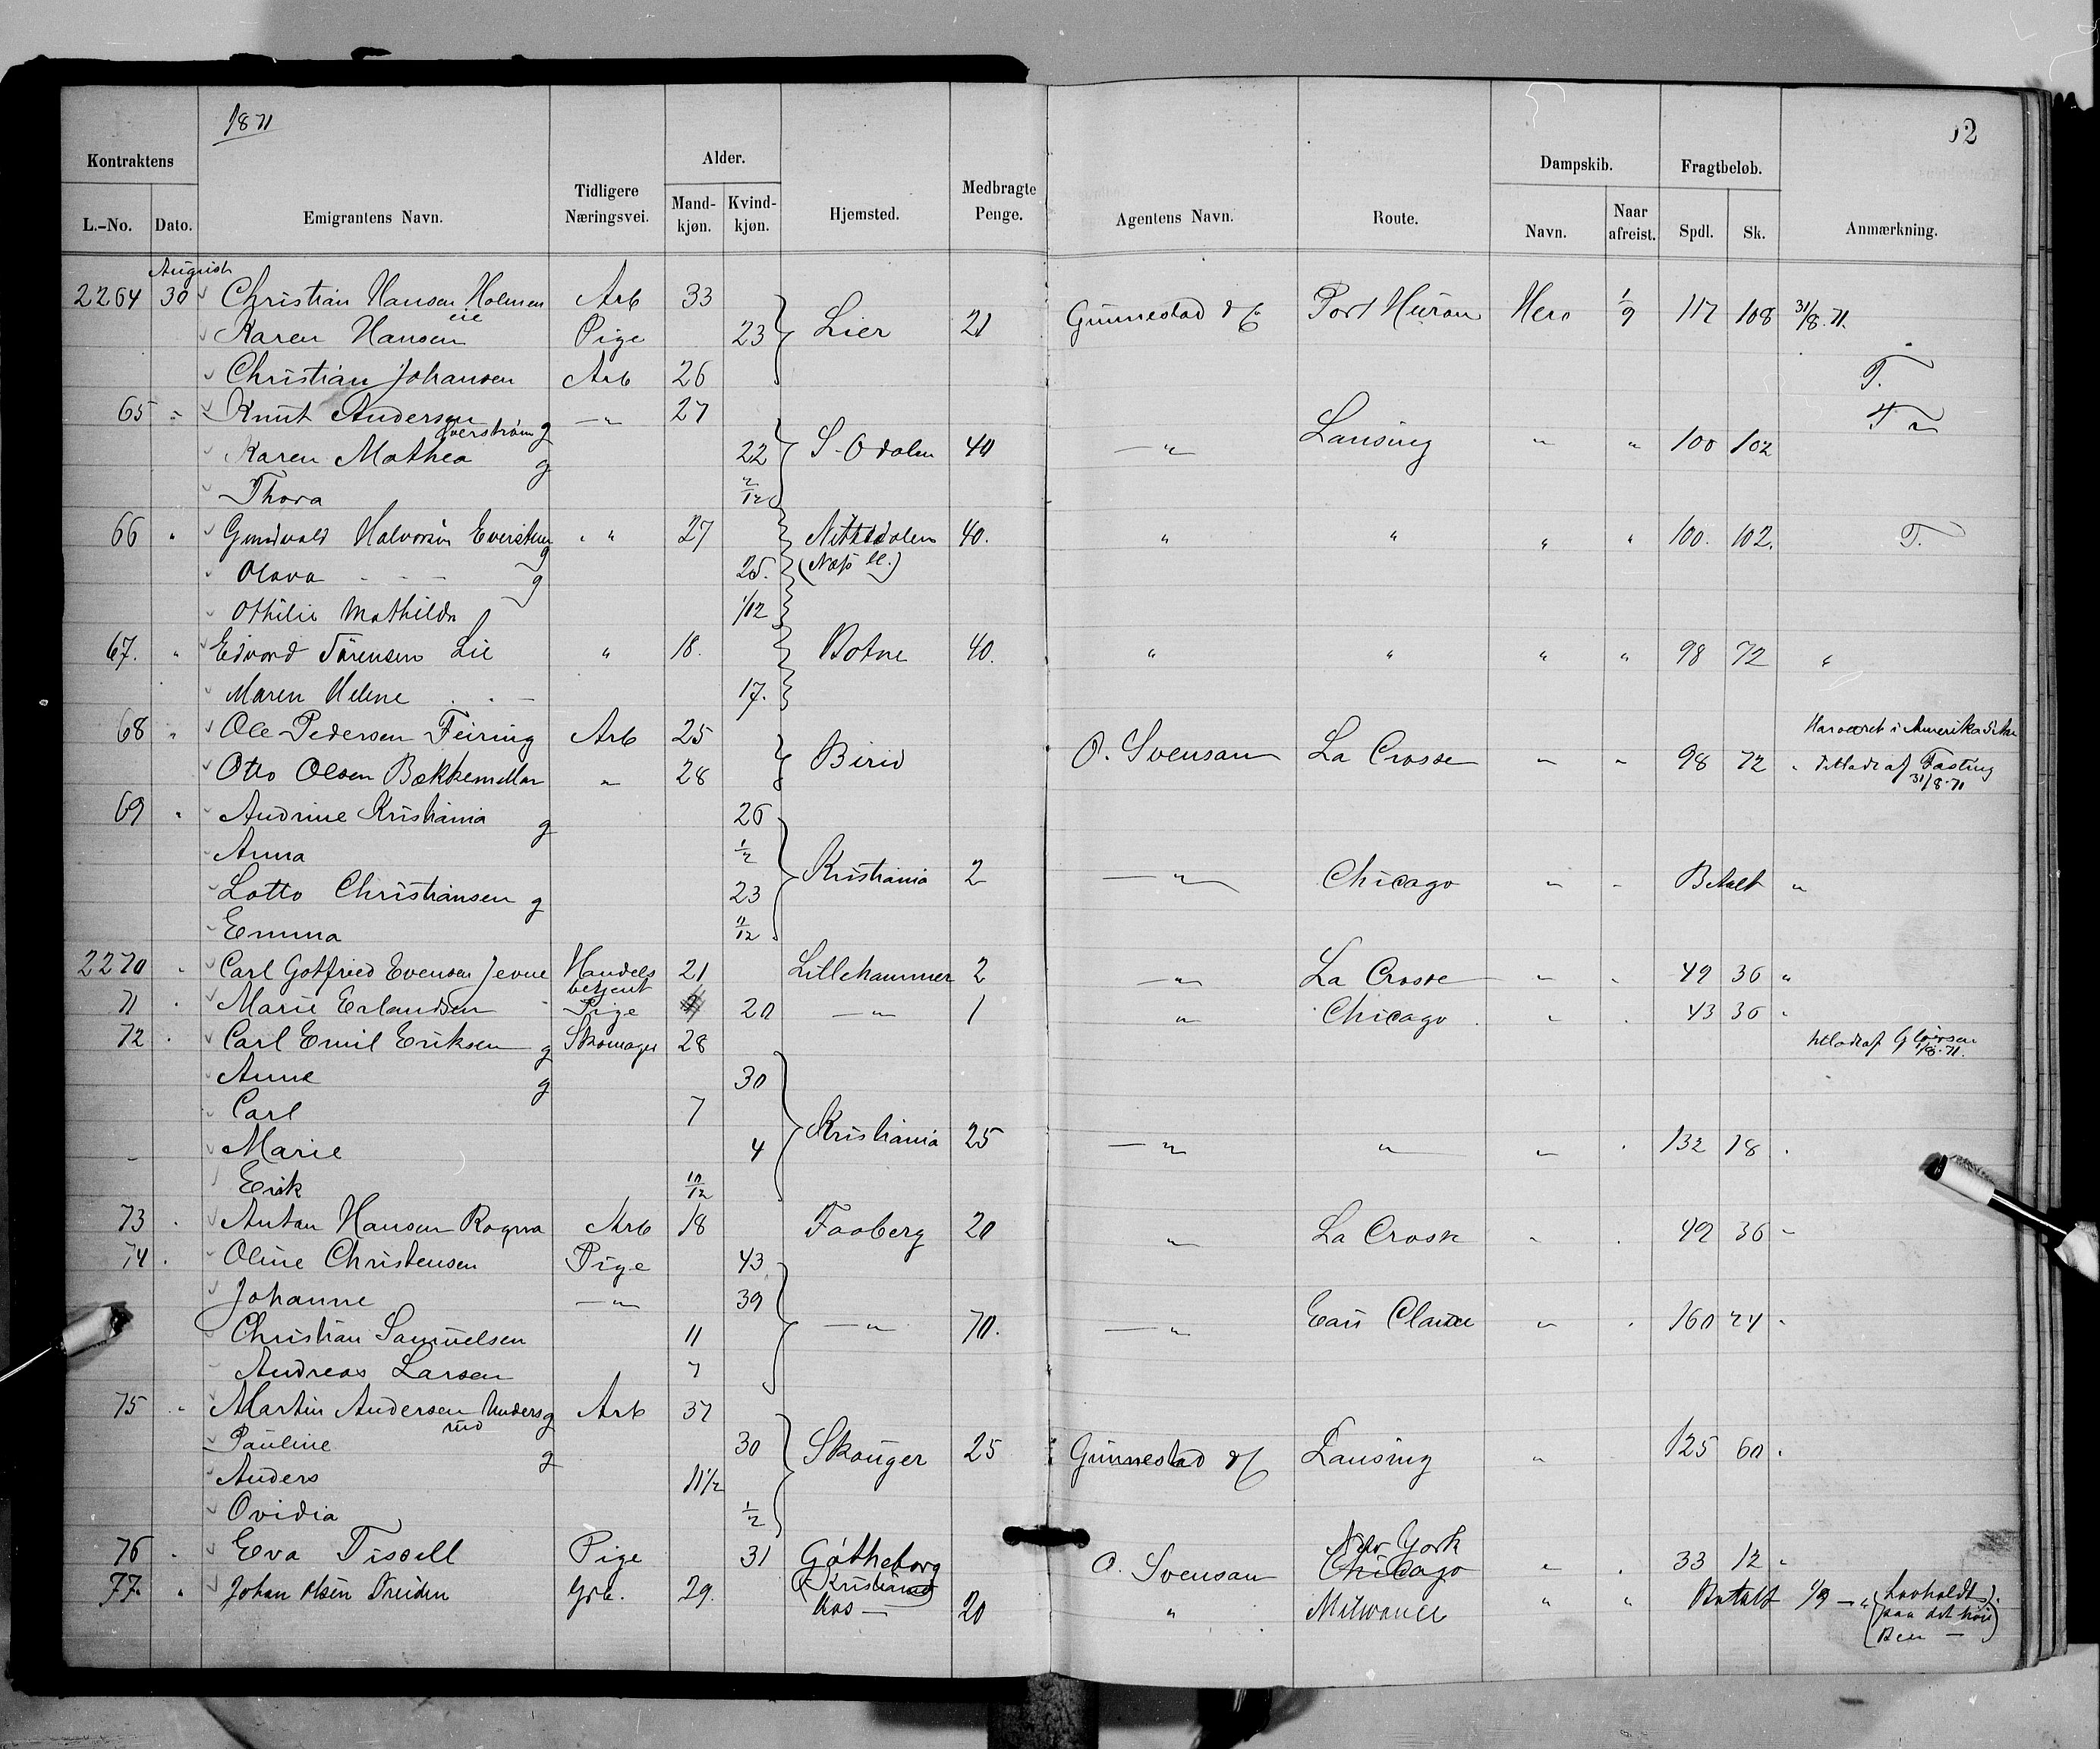 1871
12
Kontraktens
L.-No. Dato.
Emigrantens Navn.
Tidligere Næringsvei.
Alder.
Mand-kjøn. Kvind-kjøn.
Hjemsted.
Medbragte Penge.
Agentens Navn.
Route.
Dampskib.
Navn. Naar afreist.
Fragtbeløb.
Spdl. Sk.
Anmærkning.
August
2264 30 Christian Hansen Holmen Arb 33
eie
Karen Hansen Pige 23 Lier 21 Gunnestad & C Port Huron Hero 1/9 117 108 31/8.71.
Christian Johansen Arb 26 T.
65 " Knut Andersen g —"— 27
Karen Mathea g 22 S-Odalen 40 —"— Lansing " " 100 102
Thora 2/12
66 " Gundvald Halvorsen g " " 27 Nittedalen 40. " " " " 100. 102. T.
Olava - - - g 25.
Othilie Mathilde 1/12
67. " Edvard Sørensen Lie " 18. Botne 40. " " " " 98 72 "
Maren Helene - - 17.
68 " Ole Pedersen Feiring Arb 25 Har været i Amerika
Otto Olsen " 28 Birid O. Svensan La Crosse " " 98 72 " af Fasting
31/8.71
69 " Andrine Kristiania g 26
Anna 1/2
Lotto Christiansen g 23 Kristiania 2 —"— Chicago " " Betalt "
Emma /12
2270 " Carl Gotfried Evensen Jevne Handels betjent 21 Lillehammer 2 —"— La Crosse " " 49 36 "
71 " Marie Erlandsen Pige 20 —"— 1 " Chicago " " 43 36 "
72 " Carl Emil Eriksen g Skomager 28
Anne g 30
Carl 7
Marie 4 Kristiania 25 —"— " " " 132 18 "
Erik 10/12
73 " Anton Hansen Rogna Arb 18 Faaberg 20 " La Crosse " " 49 36 "
74 " Oline Christensen Pige 43
Johanne —"— 39
Christian Samuelsen 11 —"— 70. —"— Eau Claire " " 160 24 "
Andreas Larsen 7
75 " Martin Andersen Undersrud g Arb 37
Pauline g 30 Skouger 25 Gunnestad & C Lansing " 125 60 "
Anders 11 1/2
Ovidia 1/2
New York
76 " Eva Tissell Pige 31 Gøtheborg O. Svensan Chicago " " 33 12 "
77. " Johan Olsen 29. (Kristiania) 20 " Milwauce " " Betalt 1/9 —"
paa det
Ben —